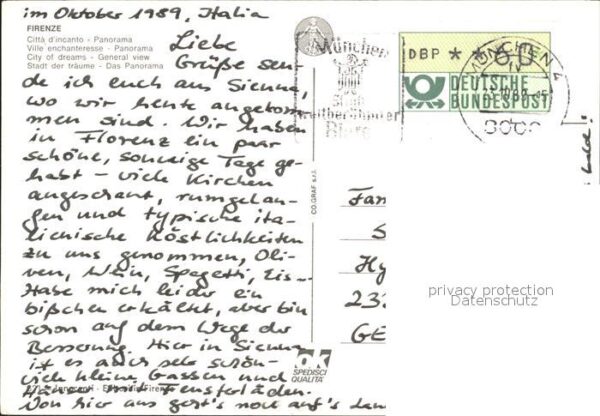 im Oktober 1989, Italia
FIRENZE
Città d'incanto - Panorama
Ville enchanteresse - Panorama
City of dreams - General view
Stadt der träume - Das Panorama
Liebe
Grüße sen-
de ich euch aus Sienna,
wo wir heute angekom-
men sind. Wir haben
in Florenz ein paar
schöne, sonnige Tage ge-
habt - viele Kirchen
angeschaut, rumgelau-
fen und typische ita-
lienische Köstlichkeiten
zu uns genommen, Oli-
ven, Wein, Spagetti, Eis -
Habe mich leider ein
bißchen erkältet, aber bin
schon auf dem Wege der
Besserung. Hier in Sienna
ist es auch sehr schön -
viele kleine Gassen und
Häuser mit Fensterläden.
Von hier aus geht's noch auf's
CO.GRAF s.r.l.
München
Stadt
weltberühmter
Biere
DBP * * 60
DEUTSCHE
BUNDESPOST
MÜNCHEN
Fam
S
Hy
23
GE
privacy protection
Datenschutz
OK
SPEDISCI
QUALITA'